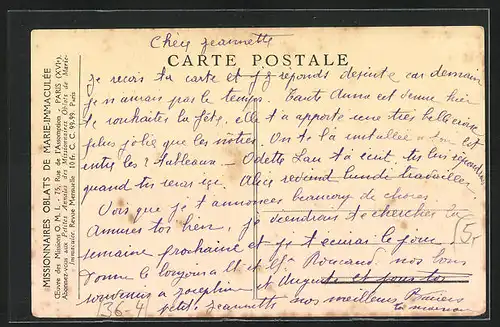 Chère Jeannette
CARTE POSTALE
MISSIONNAIRES OBLATS DE MARIE-IMMACULÉE
Œuvre des Missions O. M. I. - 75, Rue de l'Assomption - PARIS (XVIe)
Abonnez-vous aux Petites Annales des Missionnaires Oblats de Marie-
Immaculée. Revue Mensuelle 10 fr. C. C. 95.99. Paris
Je reçois ta carte et j'y réponds de suite car demain
je n'aurais pas le temps. Tante Anna est venue hier
te souhaiter la fête, elle t'a apporté une très belle
plus jolie que les nôtres. On te l'a installée
entre les 2 tableaux - Odette t'a écrit, tu lui répondras
quand tu seras ici. Alice revient lundi travailler
Vois que je t'annonce beaucoup de choses
Amuses toi bien, je viendrais te chercher la
semaine prochaine et je
Donne le bonjour à et nos bons
souvenirs à Joséphine et Auguste et pour toi
petite Jeannette nos meilleurs Baisers
ta maman
5
136-4